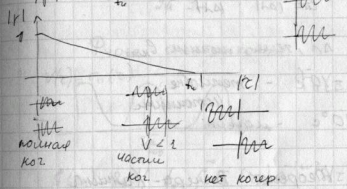 |γ|
1
|τ|
полная
ког
V < 1
частич
ког
нет когер.